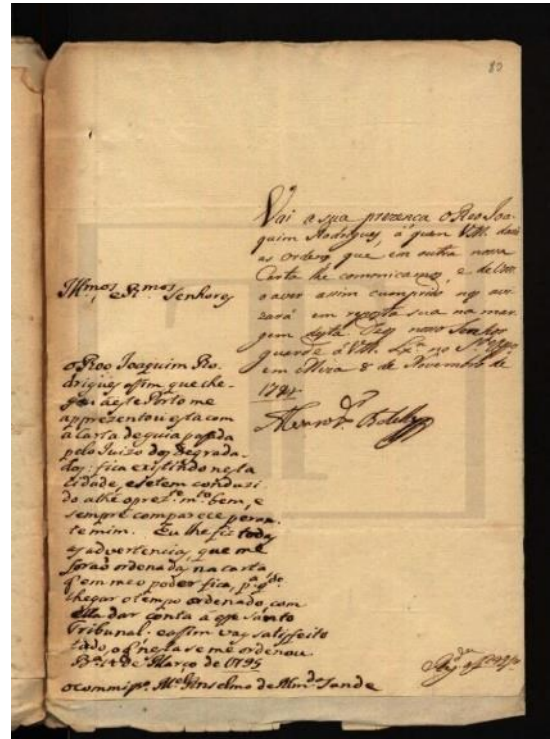 80
Vai a sua prezença o Reo Joa-
quim Rodrigues, á quem V.M. dará
as ordens, que em outra nossa
Carta lhe comonicamos, e de
o aver assim cumprido nos avi-
zará em reposta sua na mar-
gem desta Deos nosso Senhor
guarde á V.M. Lx.ª no S.to Off.º
em Meza 8 de Novembro de
1794
Ill.mos, e R.mos Senhores
o Reo Joaquim Ro-
drigues assim que che-
gou a este Porto me
apprezentou esta com
a Carta de guia passada
pelo Juizo dos Degrada-
dos: fica existindo nesta
cidade, e se tem conduzi-
do athe o prez.te m.to bem, e
sempre comparece peran-
te mim. Eu lhe fis todas
as advertencias, que me
forão ordenadas na carta
q' em meo poder fica, p.ª q.do
chegar o tempo ordenado, com
ella dar conta á esse Santo
Tribunal. e assim vay satisfeito
tudo, o q' nesta se me ordenou
de Março de 1795
o commiss.º Anselmo de Alm.da Sande